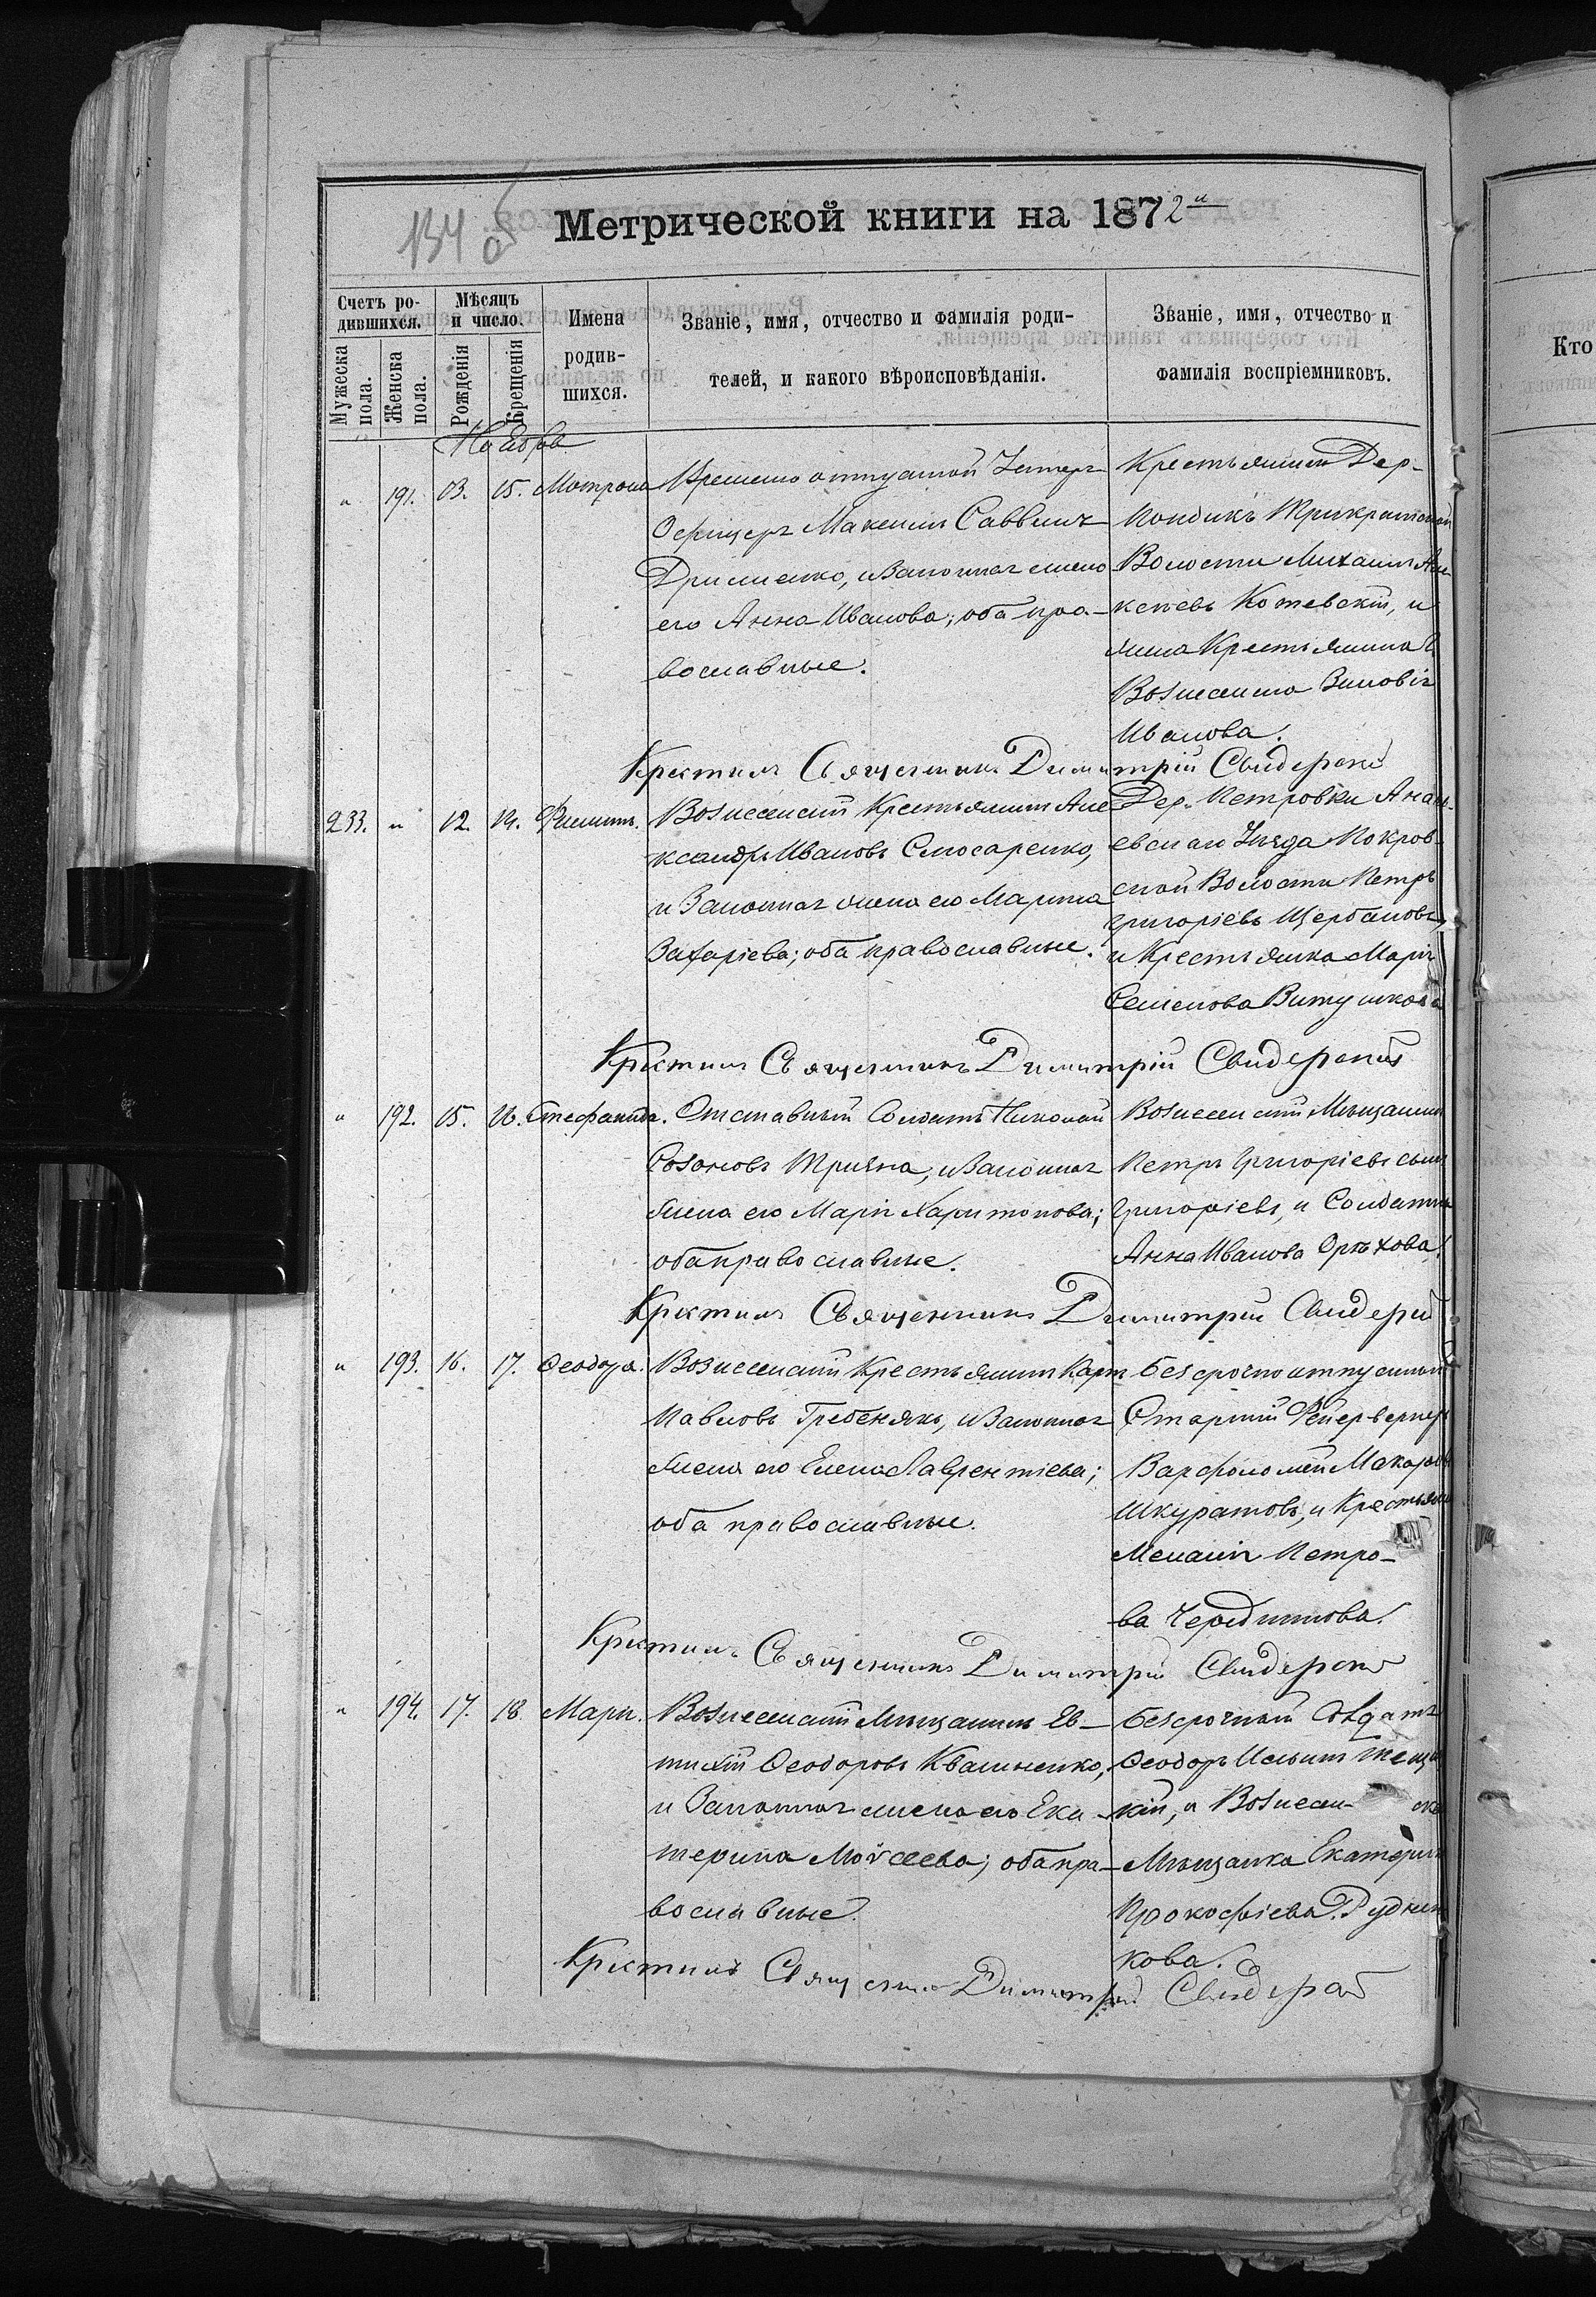 134 об
Метрической книги на 1872й
Счетъ родившихся.
Мужеска пола.
Женска пола.
Мѣсяцъ и число.
Рожденія
Крещенія
Имена родившихся.
Званіе, имя, отчество и фамилія родителей, и какого вѣроисповѣданія.
Званіе, имя, отчество и фамилія воспріемниковъ.
Кто
Ноябрь
" 191. 03. 05. Матрона
Временно отпускной Унтеръ
Офицеръ Максимъ Саввичъ
и Законная жена
его Анна Иванова; оба пра-
вославные.
Крестьянинъ Дер-
Кондикъ Трикратской
Волости Михаилъ Але-
ксѣевъ Котевскій, и
жена Крестьянина
Вознесенска Зиновія
Иванова.
Крестилъ Священникъ Димитрій Свидерскій
233. " 12. 14. Филиппъ.
Вознесенскій Крестьянинъ Але-
ксандръ Ивановъ Слюсаренко,
и Законная жена его Марина
Захаріева; оба православные.
Дер. Петровки Анань-
евскаго Уѣзда Покров-
ской Волости Петръ
Григоріевъ Щербановъ,
и Крестьянка Марія
Семенова Витушкова
Крестилъ Священникъ Димитрій Свидерскій
" 192. 05. 16. Стефанида.
Отставный Солдатъ Николай
Созоновъ и Законная
жена его Марія Харитонова;
оба православные.
Вознесенскій Мѣщанинъ
Петръ Григоріевъ сынъ
Григоріевъ, и Солдатка
Анна Иванова Орѣхова.
Крестилъ Священникъ Димитрій Свидерскій
" 193. 16. 17. Ѳеодора.
Вознесенскій Крестьянинъ Карпъ
Павловъ Гребенякъ, и Законная
жена его Елена Лаврентіева;
оба православные.
Безсрочно отпускной
Старшій Фейерверкеръ
Варфоломей Макаровъ
Шкуратовъ, и Крестьянка
Меланія Петро-
ва Чередникова.
Крестилъ Священникъ Димитрій Свидерскій
" 194. 17. 18. Марія.
Вознесенскій Мѣщанинъ Ев-
тихій Ѳеодоровъ Квашненко,
и Законная жена его Ека-
терина Моѵсеева; оба пра-
вославные.
Безсрочный Солдатъ
Ѳеодоръ Ильинъ
кій, и Вознесен- ска
Мѣщанка Екатерина
Прокофіева Рудни-
кова.
Крестилъ Священникъ Димитрій Свидерскій